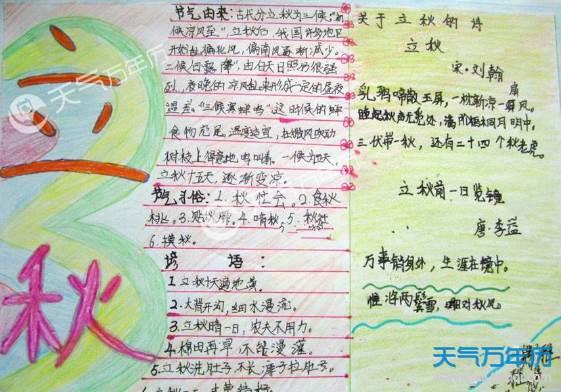 立秋
节气由来：古代分立秋为三候："初
候凉风至"，立秋后，我国许多地区
开始刮偏北风，偏南风逐渐减少。
二候白露降，由于白天日照仍很强
烈，夜晚的凉风刮来形成一定的昼夜
温差。三候寒蝉鸣"这时候的蝉
食物充足，温度适宜，在微风吹动
树枝上得意地鸣叫着。一候为五天，
立秋十五天，逐渐变凉。
节气习俗：1.秋社会，2.食秋
桃，3.贴秋膘，4.啃秋，5.秋社
6.摸秋。
谚语：
1.立秋十天遍地黄。
2.大暑开沟，细水漫流。
3.立秋晴一日，农夫不用力。
4.棉田再旱，不能漫灌。
5.立秋洗肚子，不长痱子拉肚子。
关于立秋的诗
立秋
宋·刘翰
乳鸦啼散玉屏，一枕新凉一扇风。
睡起秋声无觅处，满阶梧桐月明中。
三伏带一秋，还有二十四个秋老虎
立秋前一日览镜
唐·李益
万事销身外，生涯在镜中。
惟将两鬓雪，明日对秋风。
天气万年历
天气万年历